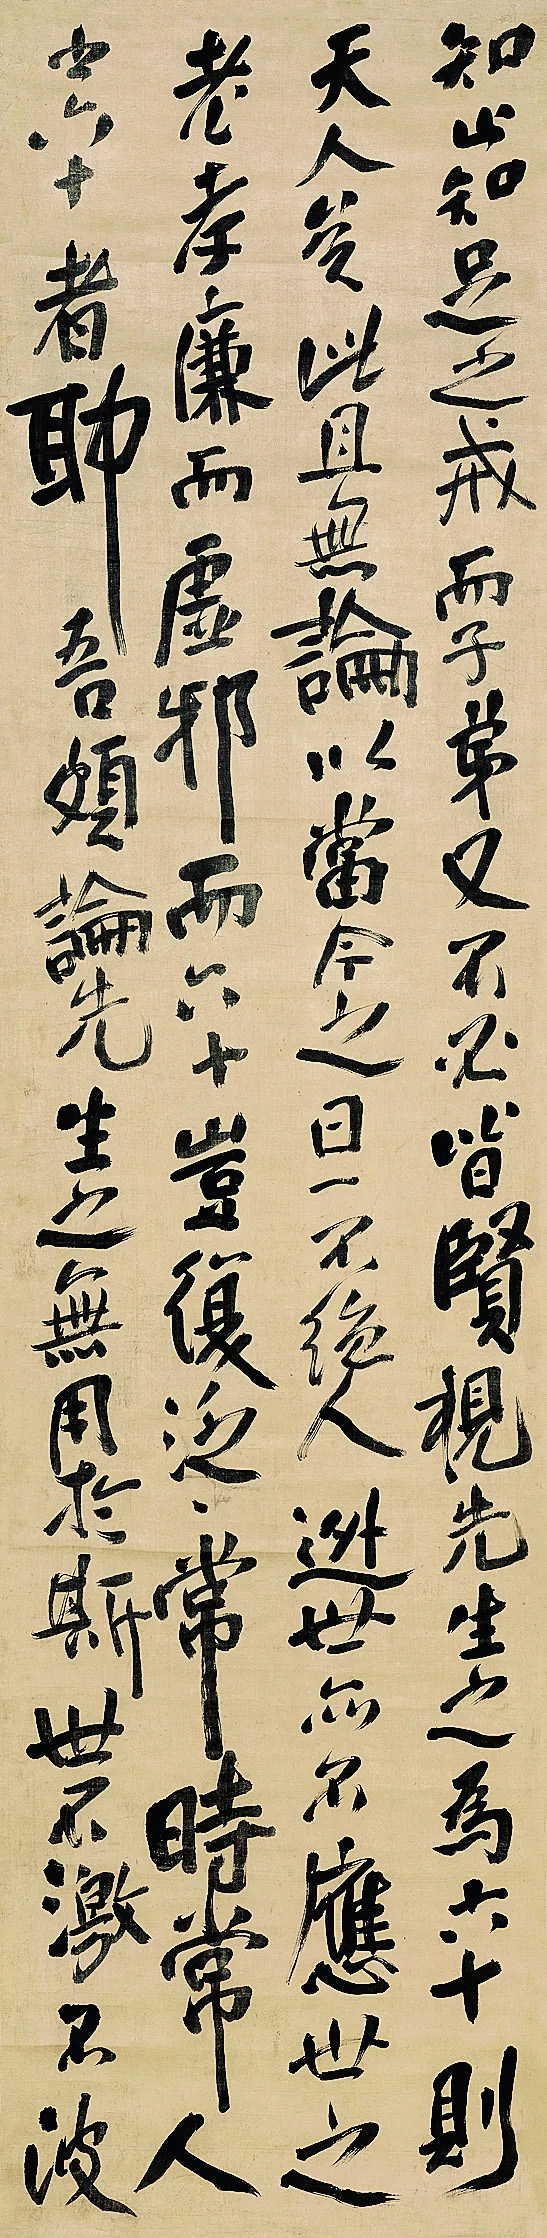 知止知足之戒而子弟又不必皆賢視先生之為六十則
天人矣此且無論以當今之日一不絕人逃世亦不應世之
老孝廉而虛邪而六十豈復泛〻常時常人
之六十者耶吾頗論先生之無用於斯世不激不波